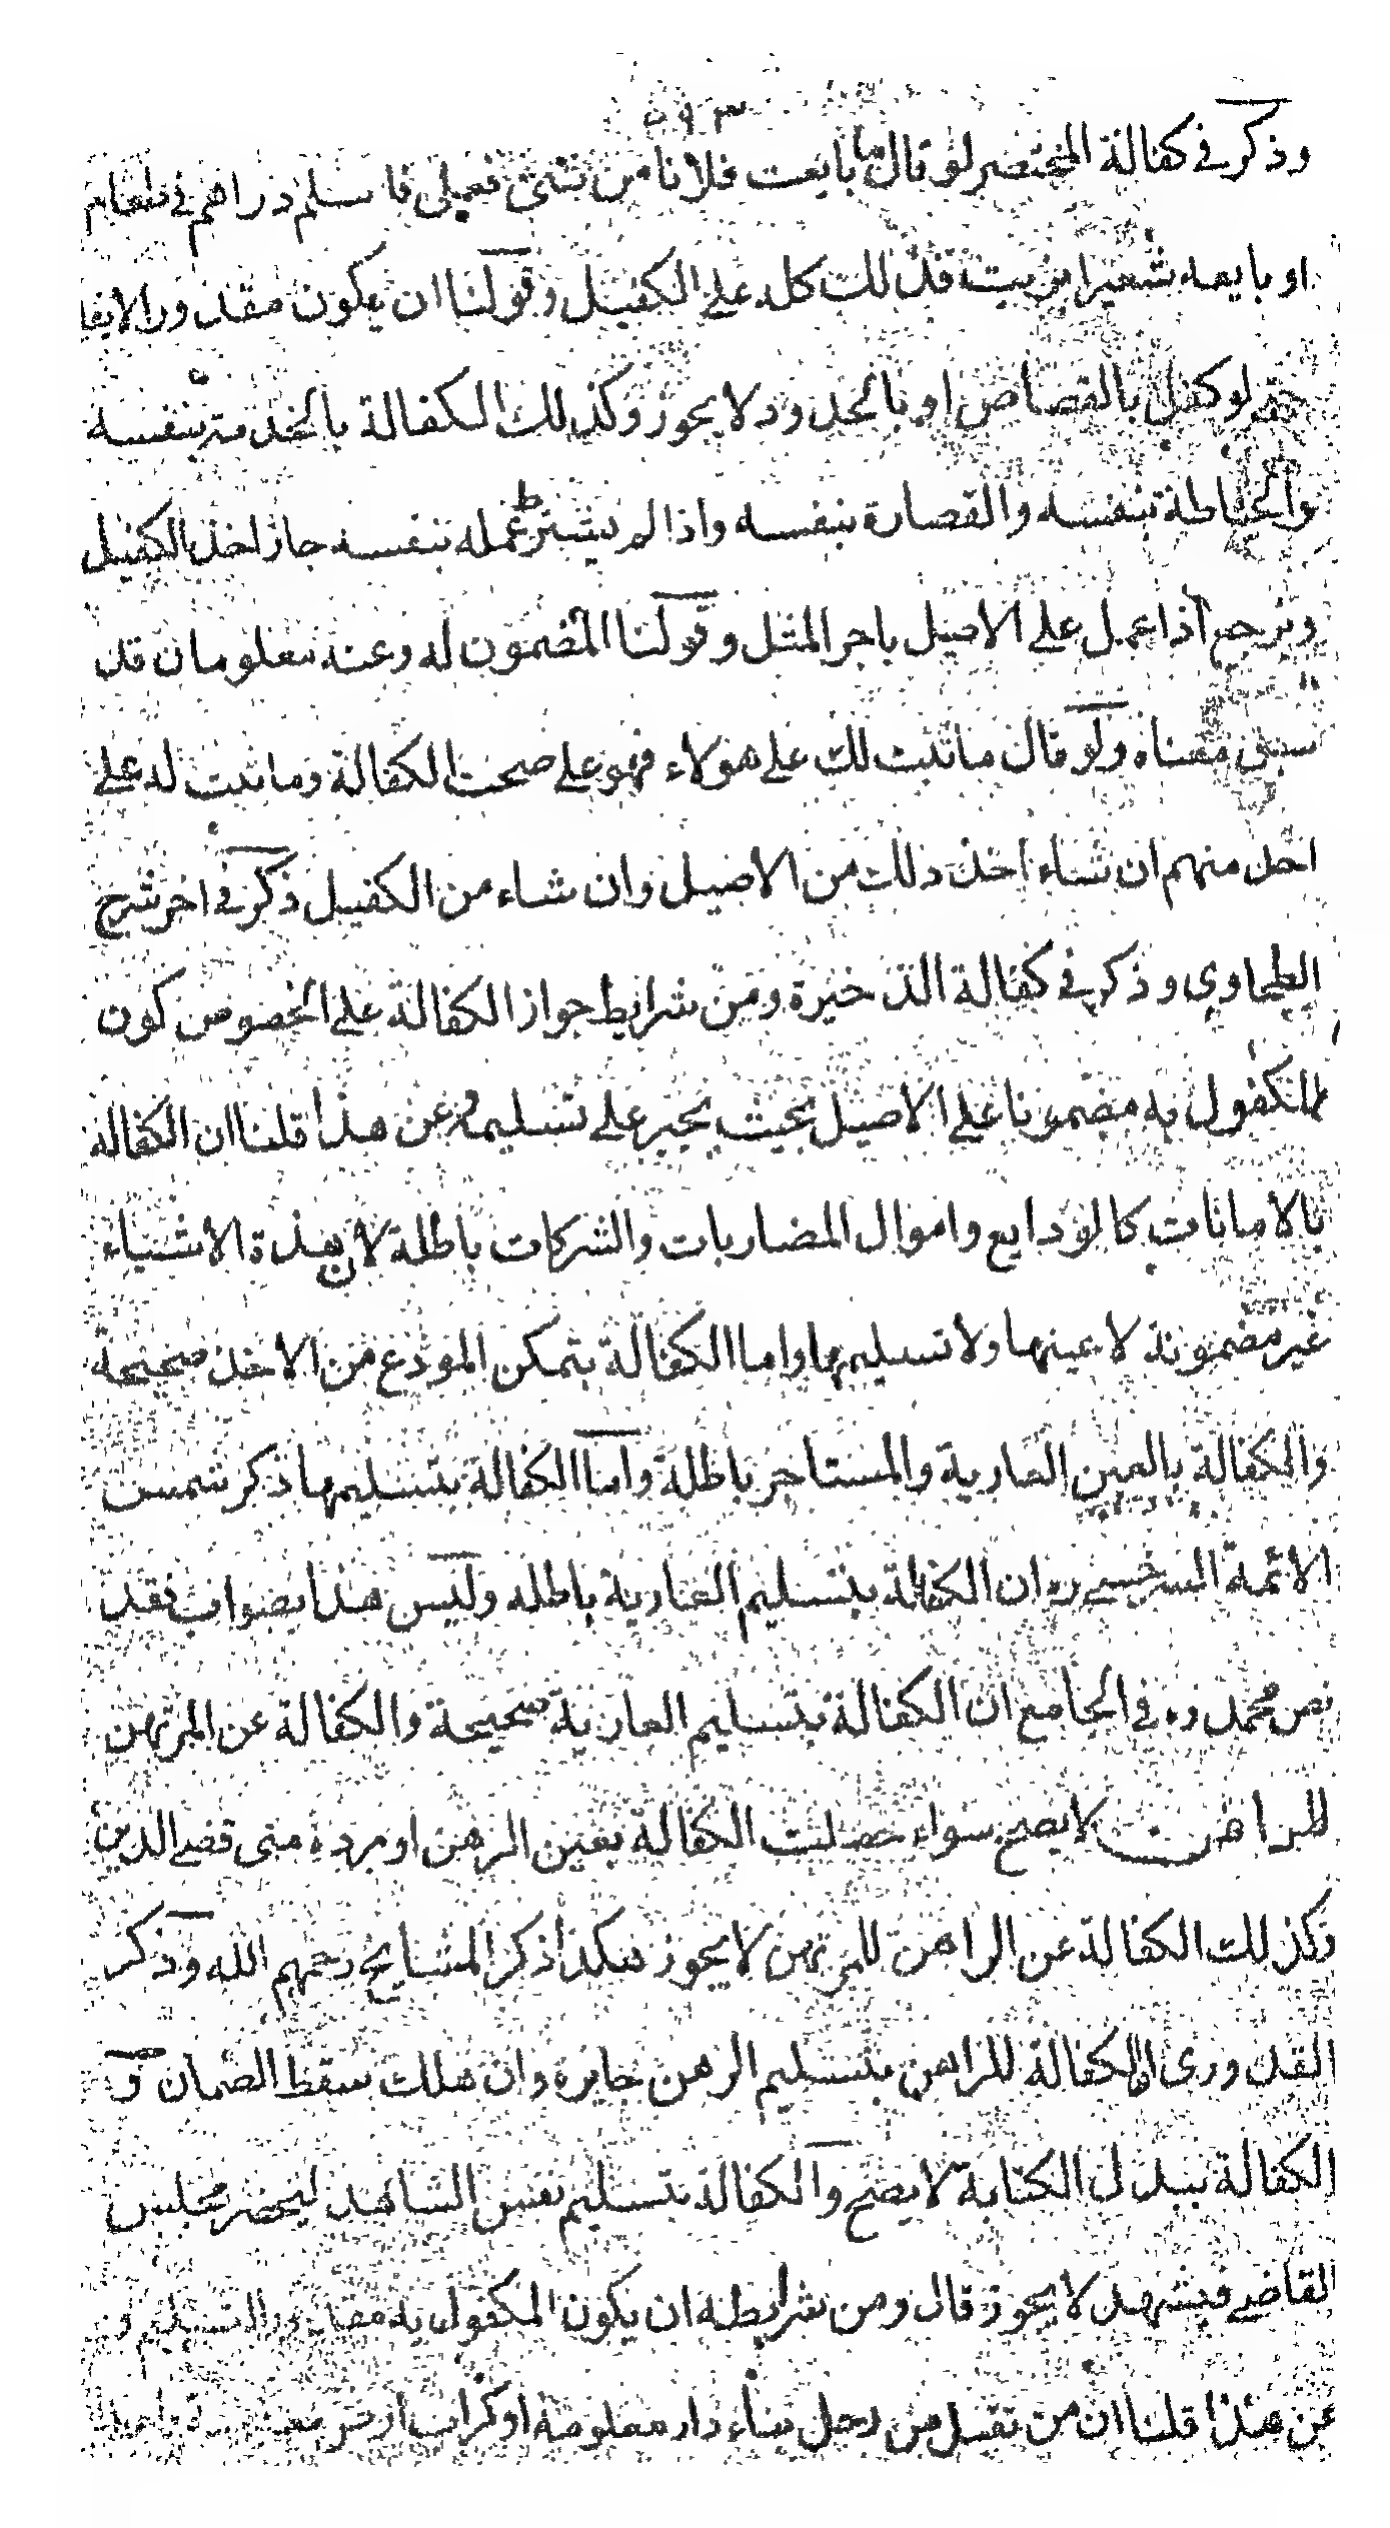 وذكر في كفالة المختصر لو قال ما بايعت فلانا من شئ فعلي فاسلم دراهم في طعام
او بايعه شعيرا بزيت فذلك كله على الكفيل وقولنا ان يكون مقدور الايفا
حتى لو كفل بالقصاص او بالحدود لا يجوز وكذلك الكفالة بالخدمة بنفسه
والخياطة بنفسه والقصارة بنفسه واذا لم يشترط عمله بنفسه جاز اخذ الكفيل
ويرجع اذا عمل على الاصيل باجر المثل وقولنا المضمون له وعنه معلومان قد
سبق معناه ولو قال ما ثبت لك على هولاء فهو على صحت الكفالة وما ثبت له على
احد منهم ان شاء اخذ ذلك من الاصيل وان شاء من الكفيل ذكر في اخر شرح
الطحاوي وذكر في كفالة الذخيرة ومن شرايط جواز الكفالة على الخصوص كون
المكفول به مضمونا على الاصيل بحيث يجبر على تسليمه وعن هذا قلنا ان الكفالة
بالامانات كالودايع واموال المضاربات والشركات باطلة لان هذة الاشياء
غير مضمونة لا عينها ولا تسليمها واما الكفالة بتمكن المودع من الاخذ صحيحة
والكفالة بالعين العارية والمستاجر باطلة واما الكفالة بتسليمها ذكر شمس
الائمة السرخسي ره ان الكفالة بتسليم العارية باطله وليس هذا بصواب فقد
نص محمد ره في الجامع ان الكفالة بتسليم العارية صحيحة والكفالة عن المرتهن
للراهن لا يصح سواء حصلت الكفالة بعين الرهن او برده متى قضى الدين
وكذلك الكفالة عن الراهن للمرتهن لا يجوز هكذا ذكر المشايخ رحمهم الله وذكر
القدوري ان الكفالة للراهن بتسليم الرهن جايزه وان هلك سقط الضمان و
الكفالة ببدل الكتابة لا يصح والكفالة بتسليم نفس الشاهد ليحضر مجلس
القاضي فيشهد لا يجوز قال ومن شرايطه ان يكون المكفول به مقدور التسليم و
عن هذا قلنا ان من تقبل من رجل بناء دار معلومة او كراب ارض